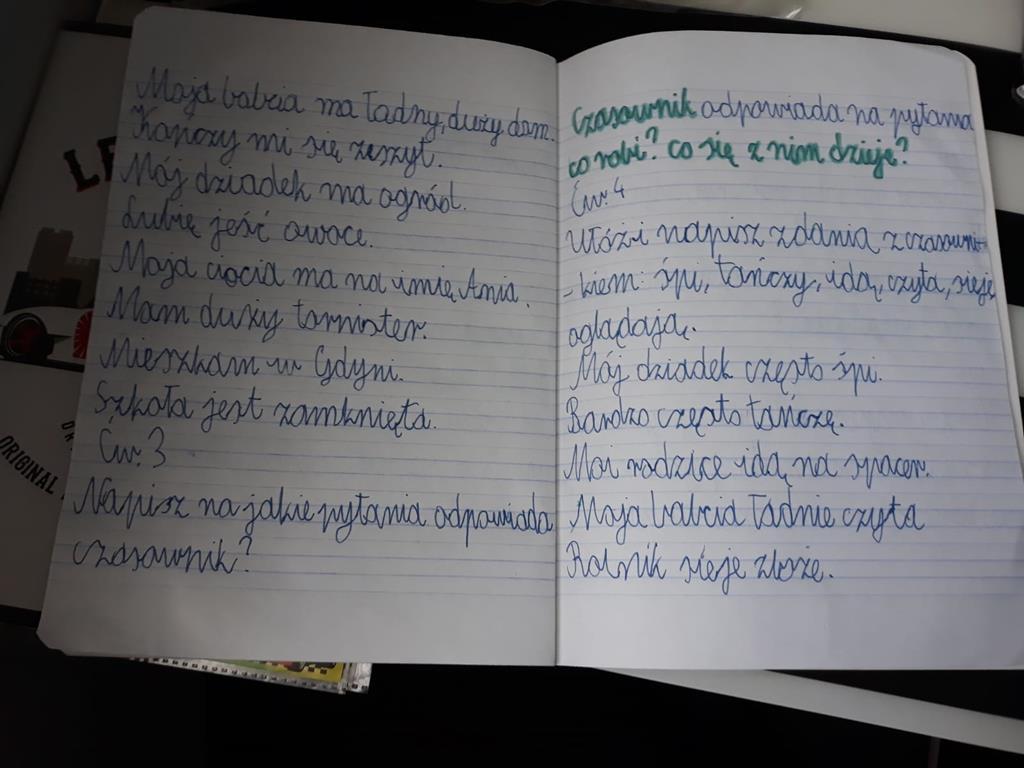 Moja babcia ma ładny, duży dom.
Kończy mi się zeszyt.
Mój dziadek ma ogród.
Lubię jeść owoce.
Moja ciocia ma na imię Ania.
Mam duży tornister.
Mieszkam w Gdyni.
Szkoła jest zamknięta.
Ćw. 3
Napisz na jakie pytania odpowiada
czasownik?
Czasownik odpowiada na pytania
co robi? co się z nim dzieje?
Ćw. 4
Ułóż i napisz zdania z czasowni-
- kiem: śpi, tańczy, idą, czyta, sieje,
oglądają.
Mój dziadek często śpi.
Bardzo często tańczę.
Moi rodzice idą na spacer.
Moja babcia ładnie czyta
Rolnik sieje zboże.
ORIGINAL